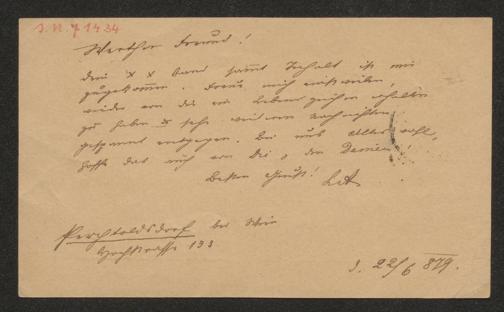 J.N. 71434
Werther Freund!
Dein X X band sammt Inhalt ist mir
zugekommen. Freue mich
wieder von dir ein Lebenszeichen erhalten
zu haben & sehe weiteren Nachrichten
gespannt entgegen. Bei uns alles wohl,
hoffe das auch von Dir & den Deinen!
Besten Gruß!
Perchtoldsdorf bei Wien
Hochstrasse 133
d. 22/6 879.